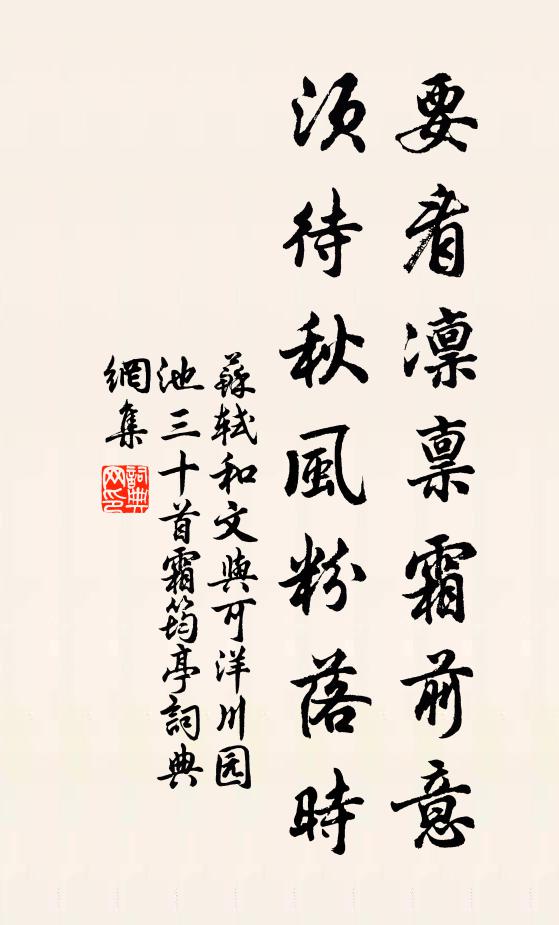 要看凛禀霜前意
须待秋风粉落時
蘇轼和文與可洋川园
池三十首霜筠亭詞典
網集
詞典
网印